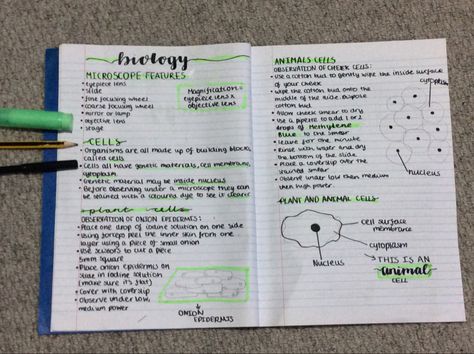 biology
MICROSCOPE FEATURES
• eyepiece lens
• Slide
• fine focusing wheel
• coarse focusing wheel
• mirror or lamp
• objective lens
• stage
Magnification =
eyepiece lens x
objective lens
CELLS
• Organisms are all made up of building blocks
called cells
• Cells all have genetic materials, cell membrane,
cytoplasm
• Genetic material may be inside nucleus
• Before observing under a microscope they can
be stained with a coloured dye to see it clearer
plant cells
OBSERVATION OF ONION EPIDERMIS:
• Place one drop of iodine solution on one side
• Using forceps peel the inner skin from one
layer using a piece of small onion
• Use scissors to cut a piece
5mm square
• Place onion epidermis on
slide in iodine solution
(make sure it's flat)
• Cover with coverslip
• Observe under low,
medium power
ONION
EPIDERMIS
ANIMALS CELLS
OBSERVATION OF CHEEK CELLS:
• Use a cotton bud to gently wipe the inside surface
of your cheek
• Wipe the cotton bud onto the
middle of the slide. Dispose
cotton bud
• Allow smear to dry
• Use a pipette to add 1 or 2
drops of Methylene
Blue to the smear
• Leave for one minute
• Rinse with water and dry
the bottom of the slide
• Place a coverslip over the
stained smear
• Observe under low then medium
then high power.
cytoplasm
nucleus
PLANT AND ANIMAL CELLS
cell surface
membrane
cytoplasm
Nucleus
THIS IS AN
animal
CELL